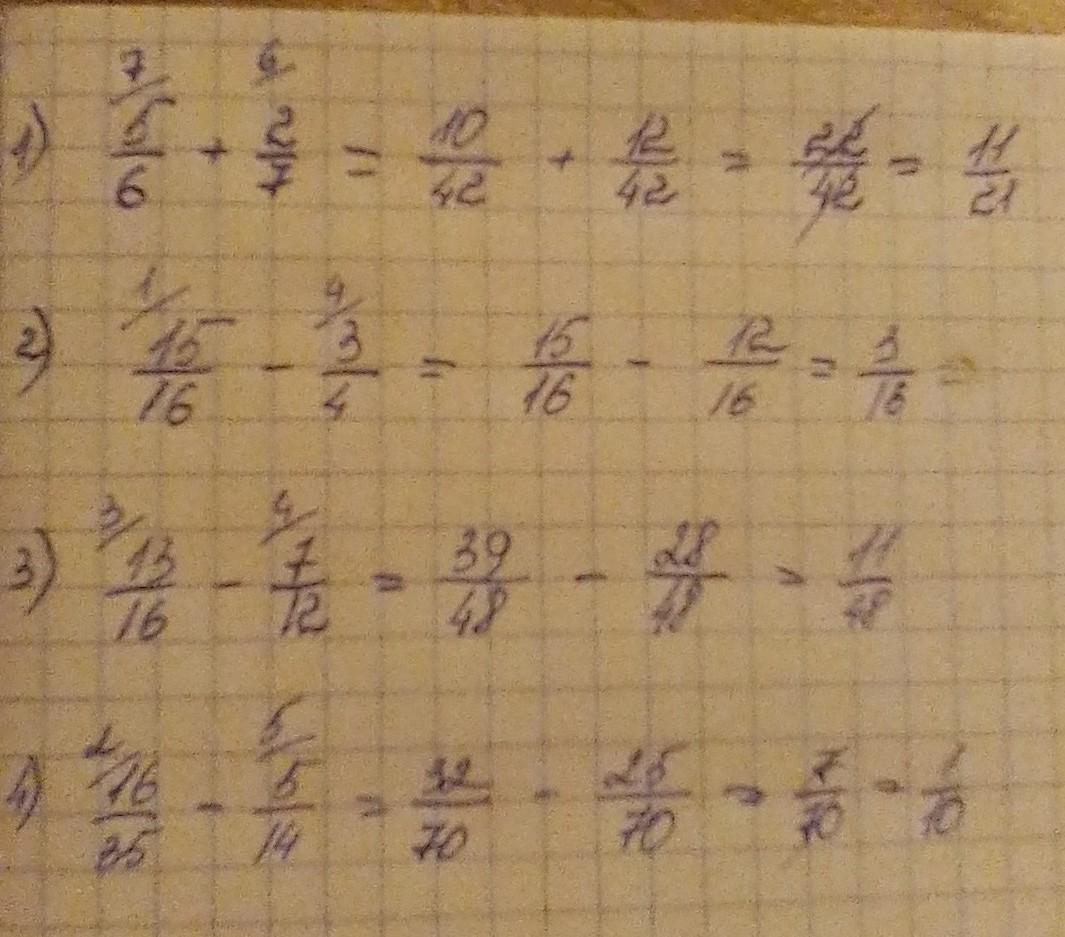 1) 7/ 5/6 + 6/ 2/7 = 10/42 + 12/42 = 22/42 = 11/21
2) 1/ 15/16 - 4/ 3/4 = 15/16 - 12/16 = 3/16 =
3) 3/ 13/16 - 4/ 7/12 = 39/48 - 28/48 = 11/48
4) 2/ 16/35 - 5/ 5/14 = 32/70 - 25/70 = 7/70 = 1/10